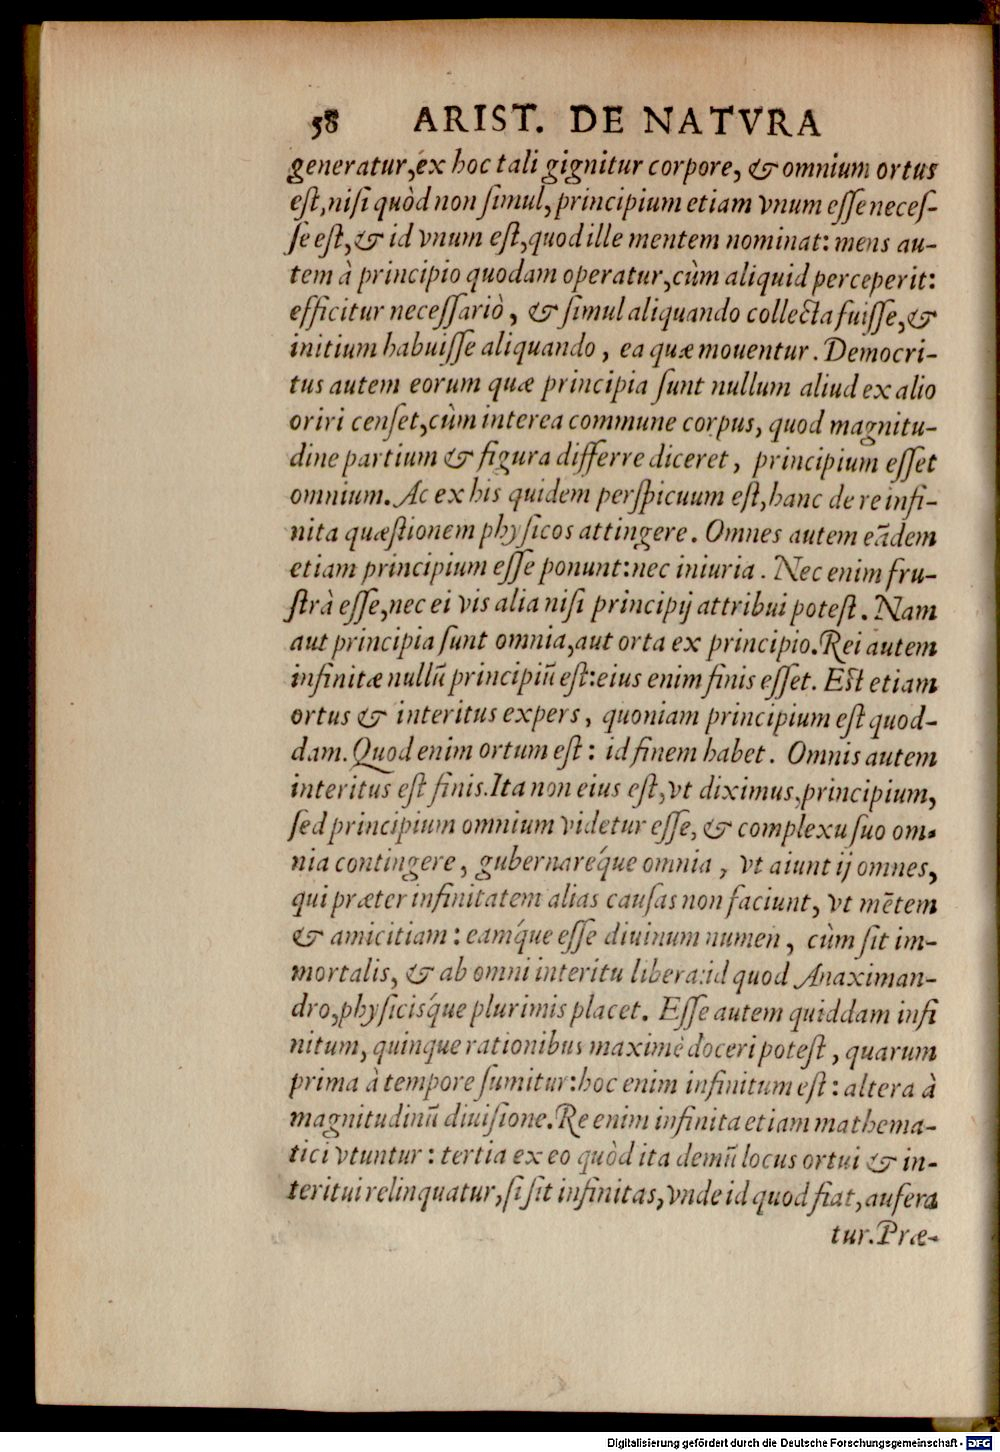 58 ARIST. DE NATVRA
generatur, ex hoc tali gignitur corpore, & omnium ortus
eſt, niſi quòd non ſimul, principium etiam vnum eſſe neceſ-
ſe eſt, & id vnum eſt, quod ille mentem nominat: mens au-
tem à principio quodam operatur, cùm aliquid perceperit:
efficitur neceſſariò, & ſimul aliquando collecta fuiſſe, &
initium habuiſſe aliquando, ea quæ mouentur. Democri-
tus autem eorum quæ principia ſunt nullum aliud ex alio
oriri cenſet, cùm interea commune corpus, quod magnitu-
dine partium & figura differre diceret, principium eſſet
omnium. Ac ex his quidem perſpicuum eſt, hanc de re infi-
nita quæſtionem phyſicos attingere. Omnes autem eãdem
etiam principium eſſe ponunt: nec iniuria. Nec enim fru-
ſtrà eſſe, nec ei vis alia niſi principij attribui poteſt. Nam
aut principia ſunt omnia, aut orta ex principio. Rei autem
infinitæ nullũ principiũ eſt: eius enim finis eſſet. Eſt etiam
ortus & interitus expers, quoniam principium eſt quod-
dam. Quod enim ortum eſt: id finem habet. Omnis autem
interitus eſt finis. Ita non eius eſt, vt diximus, principium,
ſed principium omnium videtur eſſe, & complexu ſuo om-
nia contingere, gubernaréque omnia, vt aiunt ij omnes,
qui præter infinitatem alias cauſas non faciunt, vt mẽtem
& amicitiam: eamq́ue eſſe diuinum numen, cùm ſit im-
mortalis, & ab omni interitu libera: id quod Anaximan-
dro, phyſicisq́ue plurimis placet. Eſſe autem quiddam infi
nitum, quinque rationibus maximè doceri poteſt, quarum
prima à tempore ſumitur: hoc enim infinitum eſt: altera à
magnitudinũ diuiſione. Re enim infinita etiam mathema-
tici vtuntur: tertia ex eo quòd ita demũ locus ortui & in-
teritui relinquatur, ſi ſit infinitas, vnde id quod fiat, aufera
tur. Præ-
Digitalisierung gefördert durch die Deutsche Forschungsgemeinschaft - DFG